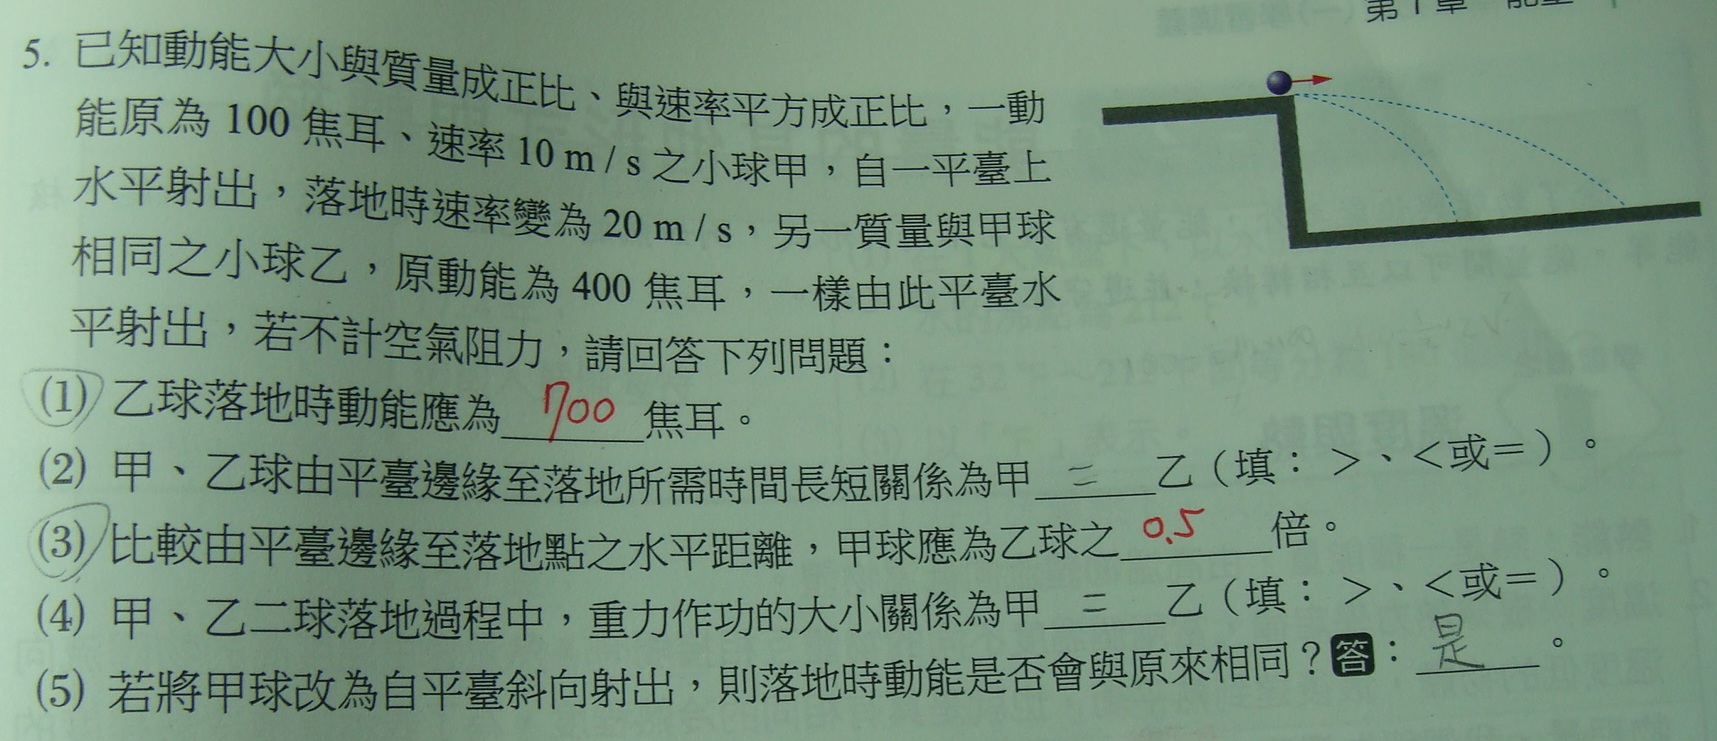 第1章 能量
5. 已知動能大小與質量成正比、與速率平方成正比，一動
能原為 100 焦耳、速率 10 m / s 之小球甲，自一平臺上
水平射出，落地時速率變為 20 m / s，另一質量與甲球
相同之小球乙，原動能為 400 焦耳，一樣由此平臺水
平射出，若不計空氣阻力，請回答下列問題：
(1) 乙球落地時動能應為 700 焦耳。
(2) 甲、乙球由平臺邊緣至落地所需時間長短關係為甲 = 乙（填：＞、＜或＝）。
(3) 比較由平臺邊緣至落地點之水平距離，甲球應為乙球之 0.5 倍。
(4) 甲、乙二球落地過程中，重力作功的大小關係為甲 = 乙（填：＞、＜或＝）。
(5) 若將甲球改為自平臺斜向射出，則落地時動能是否會與原來相同？答： 是 。